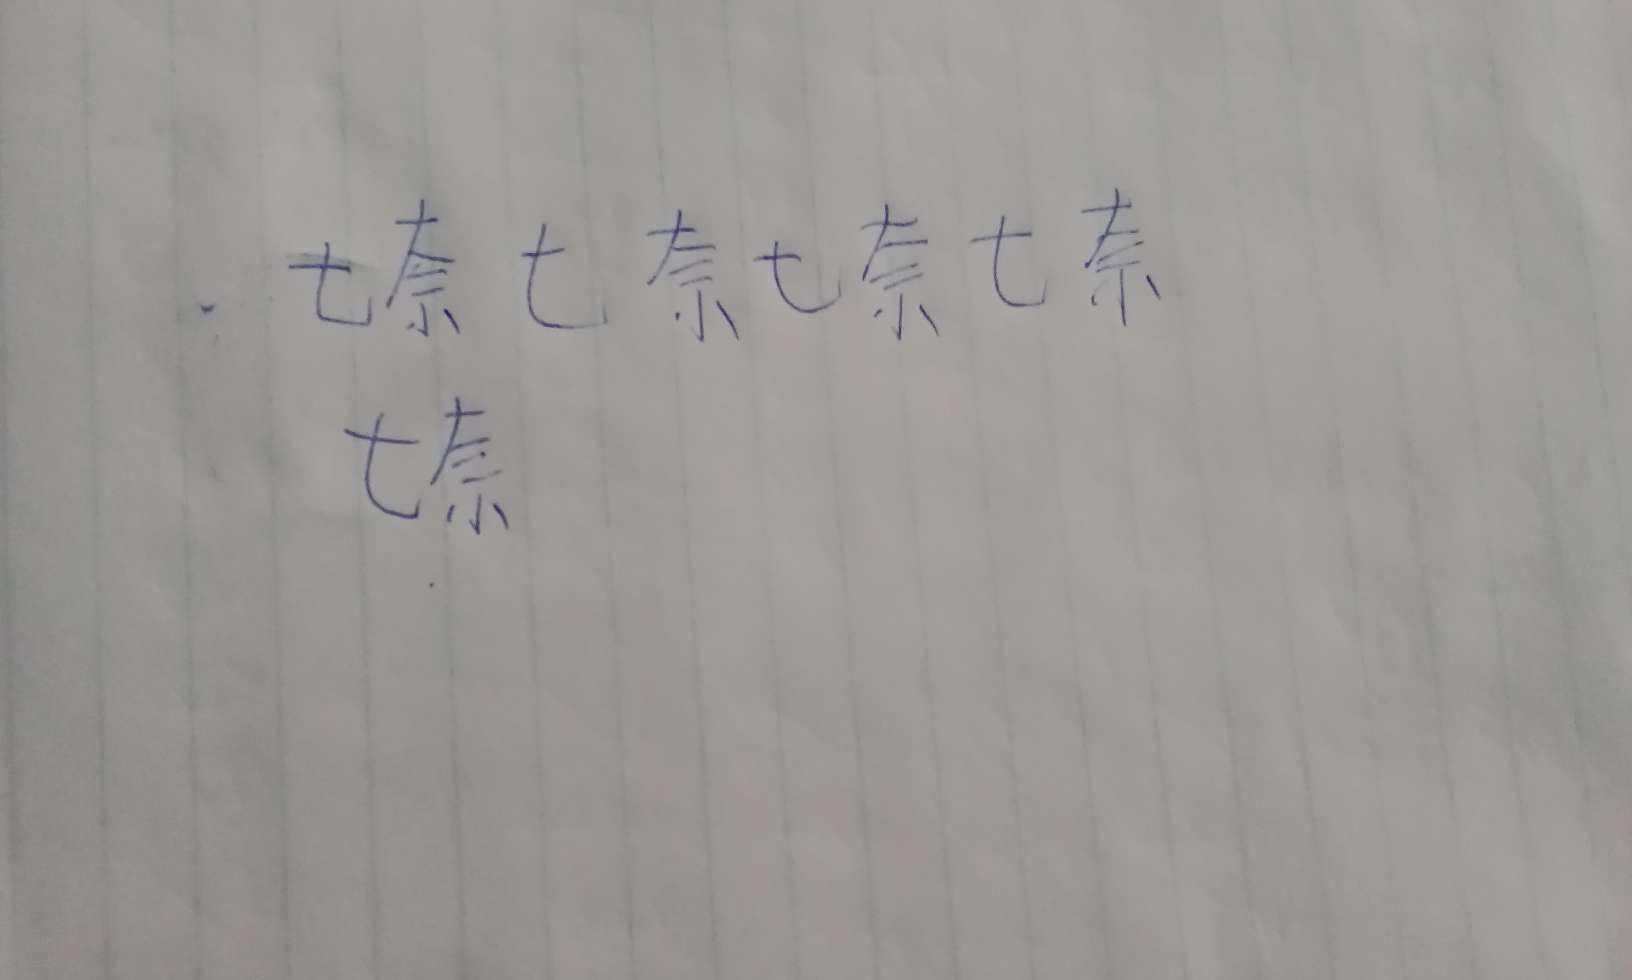 七奈七奈七奈七奈
七奈